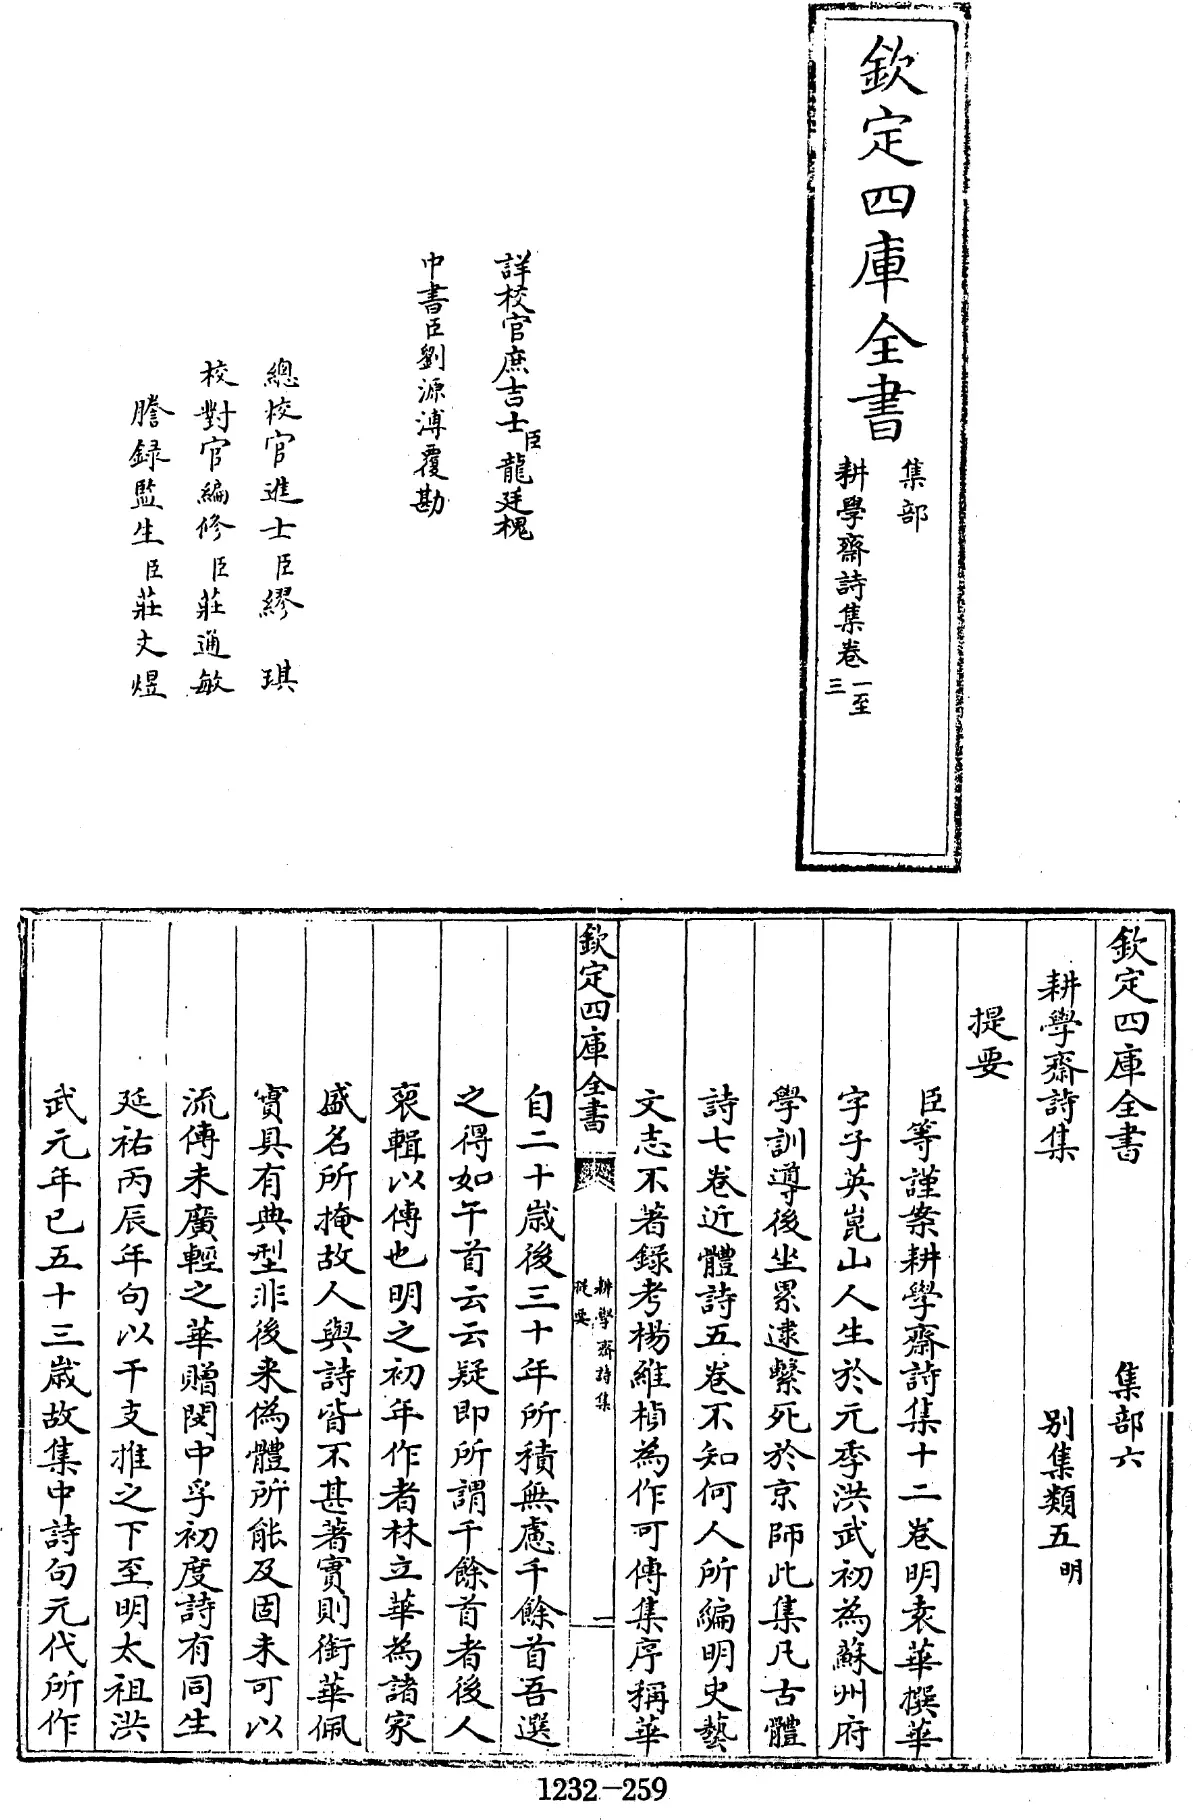 欽定四庫全書
集部
耕學齋詩集卷一至三
詳校官庶吉士臣龍廷槐
中書臣劉源溥覆勘
總校官進士臣繆琪
校對官編修臣莊通敏
謄錄監生臣莊文煜
欽定四庫全書 集部六
耕學齋詩集 別集類五明
提要
臣等謹案耕學齋詩集十二卷明袁華撰華
字子英崑山人生於元季洪武初為蘇州府
學訓導後坐累逮繫死於京師此集凡古體
詩七卷近體詩五卷不知何人所編明史藝
文志不著錄考楊維楨為作可傳集序稱華
欽定四庫全書 耕學齋詩集 提要 一
自二十歲後三十年所積無慮千餘首吾選
之得如干首云云疑即所謂千餘首者後人
裒輯以傳也明之初年作者林立華為諸家
盛名所掩故人與詩皆不甚著實則銜華佩
實具有典型非後来偽體所能及固未可以
流傳未廣輕之華贈閔中孚初度詩有同生
延祐丙辰年句以干支推之下至明太祖洪
武元年已五十三歲故集中詩句元代所作
1232-259